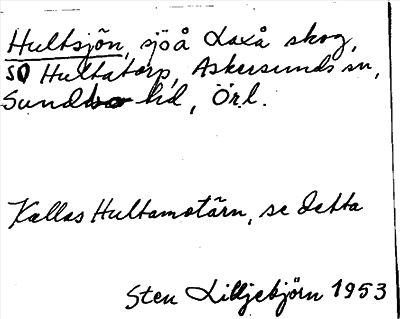 Hultsjön, sjö å Laxå skog,
SO Hultatorp, Askersunds sn,
Sundbo hd, Örl.
Kallas Hultamotärn, se detta
Sten Lilljebjörn 1953